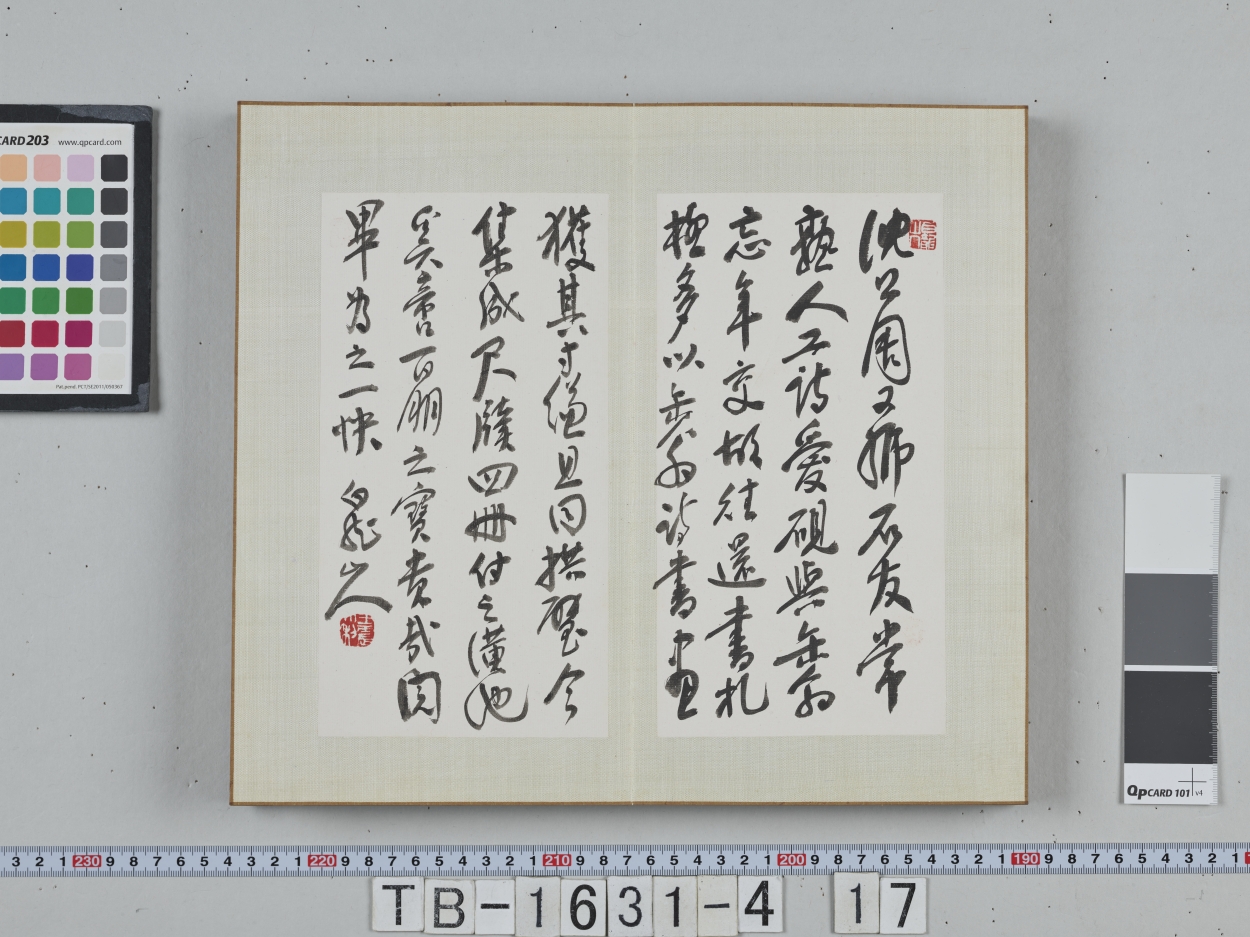 沈公周又號石友常
熟人工詩愛硯與缶翁
忘年交故往還書札
極多以缶翁詩書畫
獲其寸縑且同拱璧今
集成尺牘四冊付之潢池
奚啻百朋之寶貴哉閱
畢為之一快 白龍山人
CARD 203 www.qpcard.com
QpCARD 101 v4
3 2 1 230 9 8 7 6 5 4 3 2 1 220 9 8 7 6 5 4 3 2 1 210 9 8 7 6 5 4 3 2 1 200 9 8 7 6 5 4 3 2 1 190 9 8 7 6 5 4 3 2 1
TB-1631-4 17